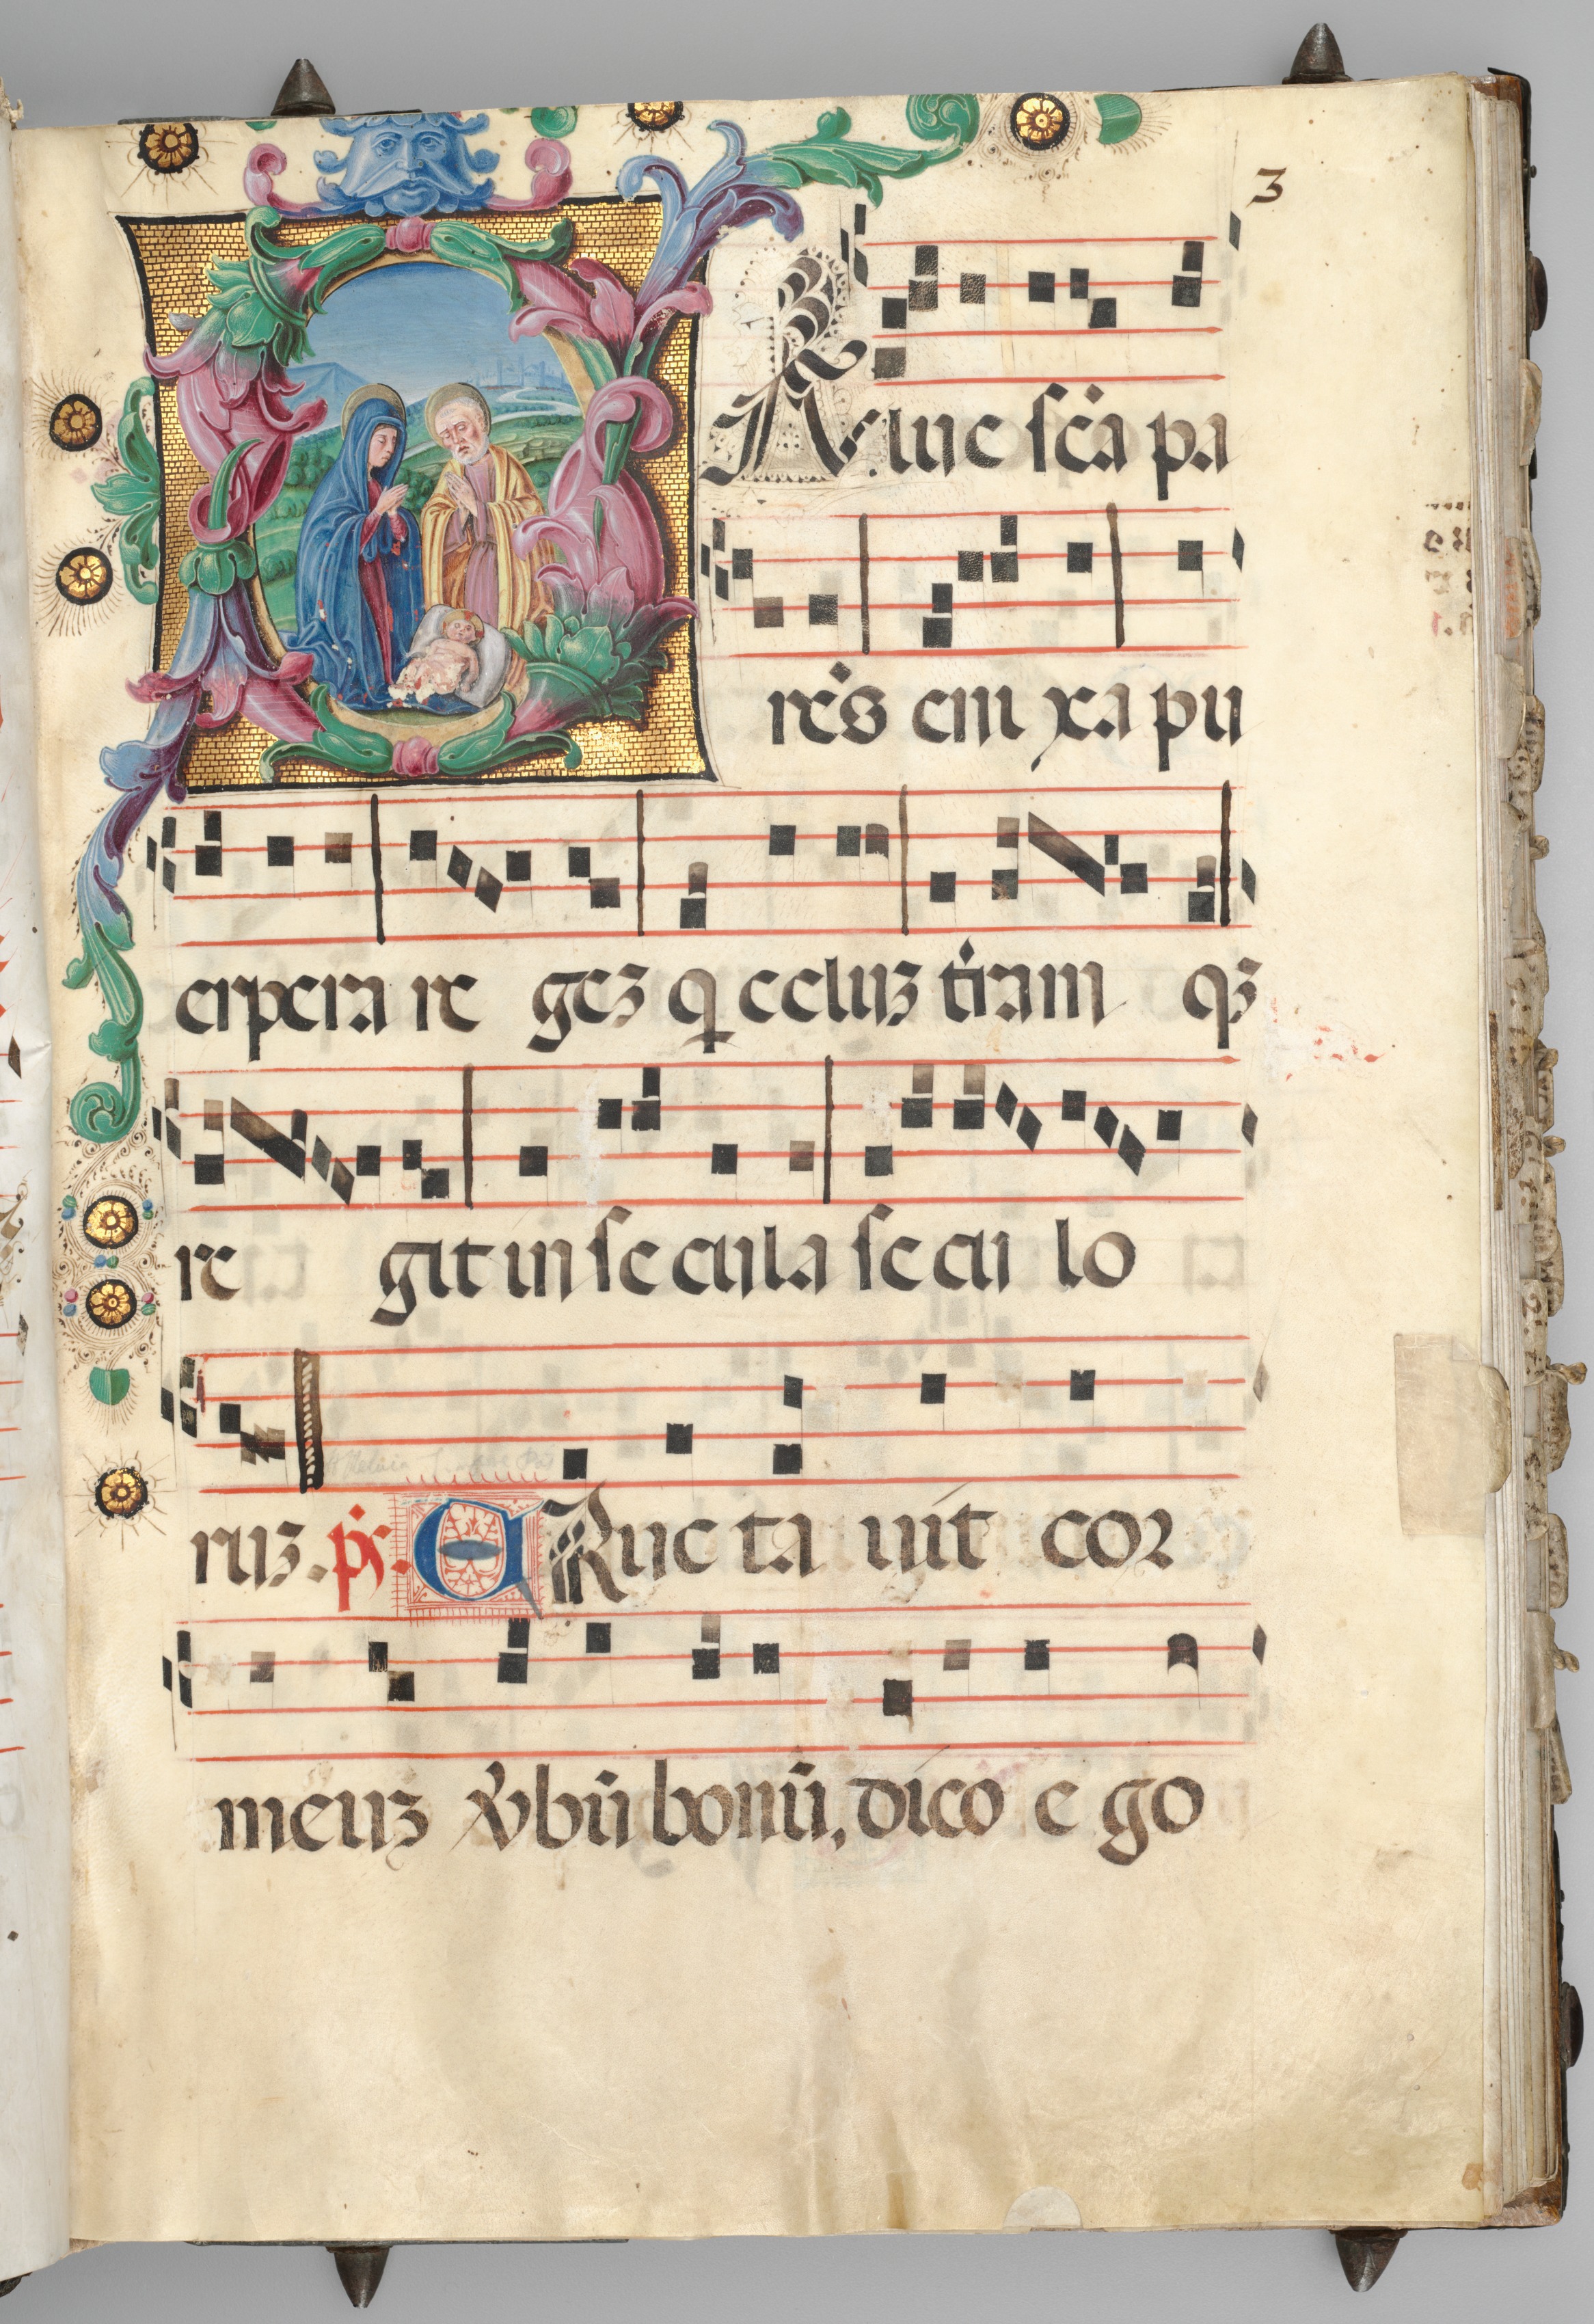 3
Alue sc̄a pa
rēs eni xa pu
erpera re gez q celuz t̄ram qz
re git in secula secu lo
ruz . ps. E Ructa uit cor
meuz v̄bū bonū, dico e go